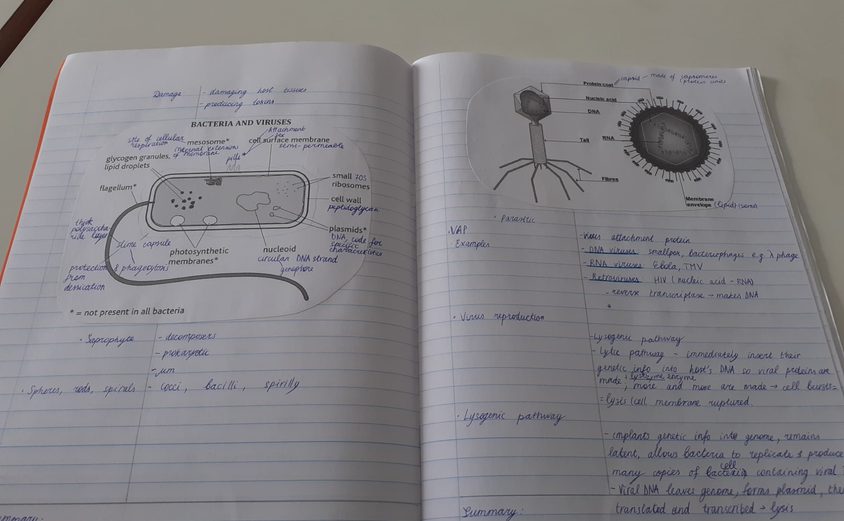 Damage - damaging host tissues
- producing toxins
BACTERIA AND VIRUSES
site of cellular respiration
mesosome*
internal extension of membrane
attachment for
pili*
cell surface membrane
semi-permeable
glycogen granules,
lipid droplets
flagellum*
small 70S
ribosomes
cell wall
peptidoglycan
plasmids*
DNA code for
specific
characteristics
thick
polysaccharide layer
slime capsule
photosynthetic
membranes*
nucleoid
circular DNA strand
genophore
protection & phagocytosis
from
dessication
* = not present in all bacteria
· Saprophyte - decomposers
- prokaryotic
- µm
· Spheres, rods, spirals - cocci, bacilli, spirilly
Summary:
Protein coat capsid - made of capsomeres
protein units
Nucleic acid
DNA
RNA
Tail
Fibres
Membrane
envelope (lipid)
· Parasitic
· VAP - virus attachment protein
Examples - DNA viruses smallpox, bacteriophages e.g. λ phage
- RNA viruses Ebola, TMV
- Retroviruses HIV (nucleic acid - RNA)
- reverse transcriptase → makes DNA
· Virus reproduction
- Lysogenic pathway
- Lytic pathway - immediately insert their
genetic info into host's DNA so viral proteins are
made + lysozyme enzyme, more and more are made → cell bursts =
= lysis (cell membrane ruptured.
· Lysogenic pathway
- implants genetic info into genome, remains
latent, allows bacteria to replicate & produce
many copies of bacteria cell containing viral
- Viral DNA leaves genome, forms plasmid, the
translated and transcribed → lysis
Summary: